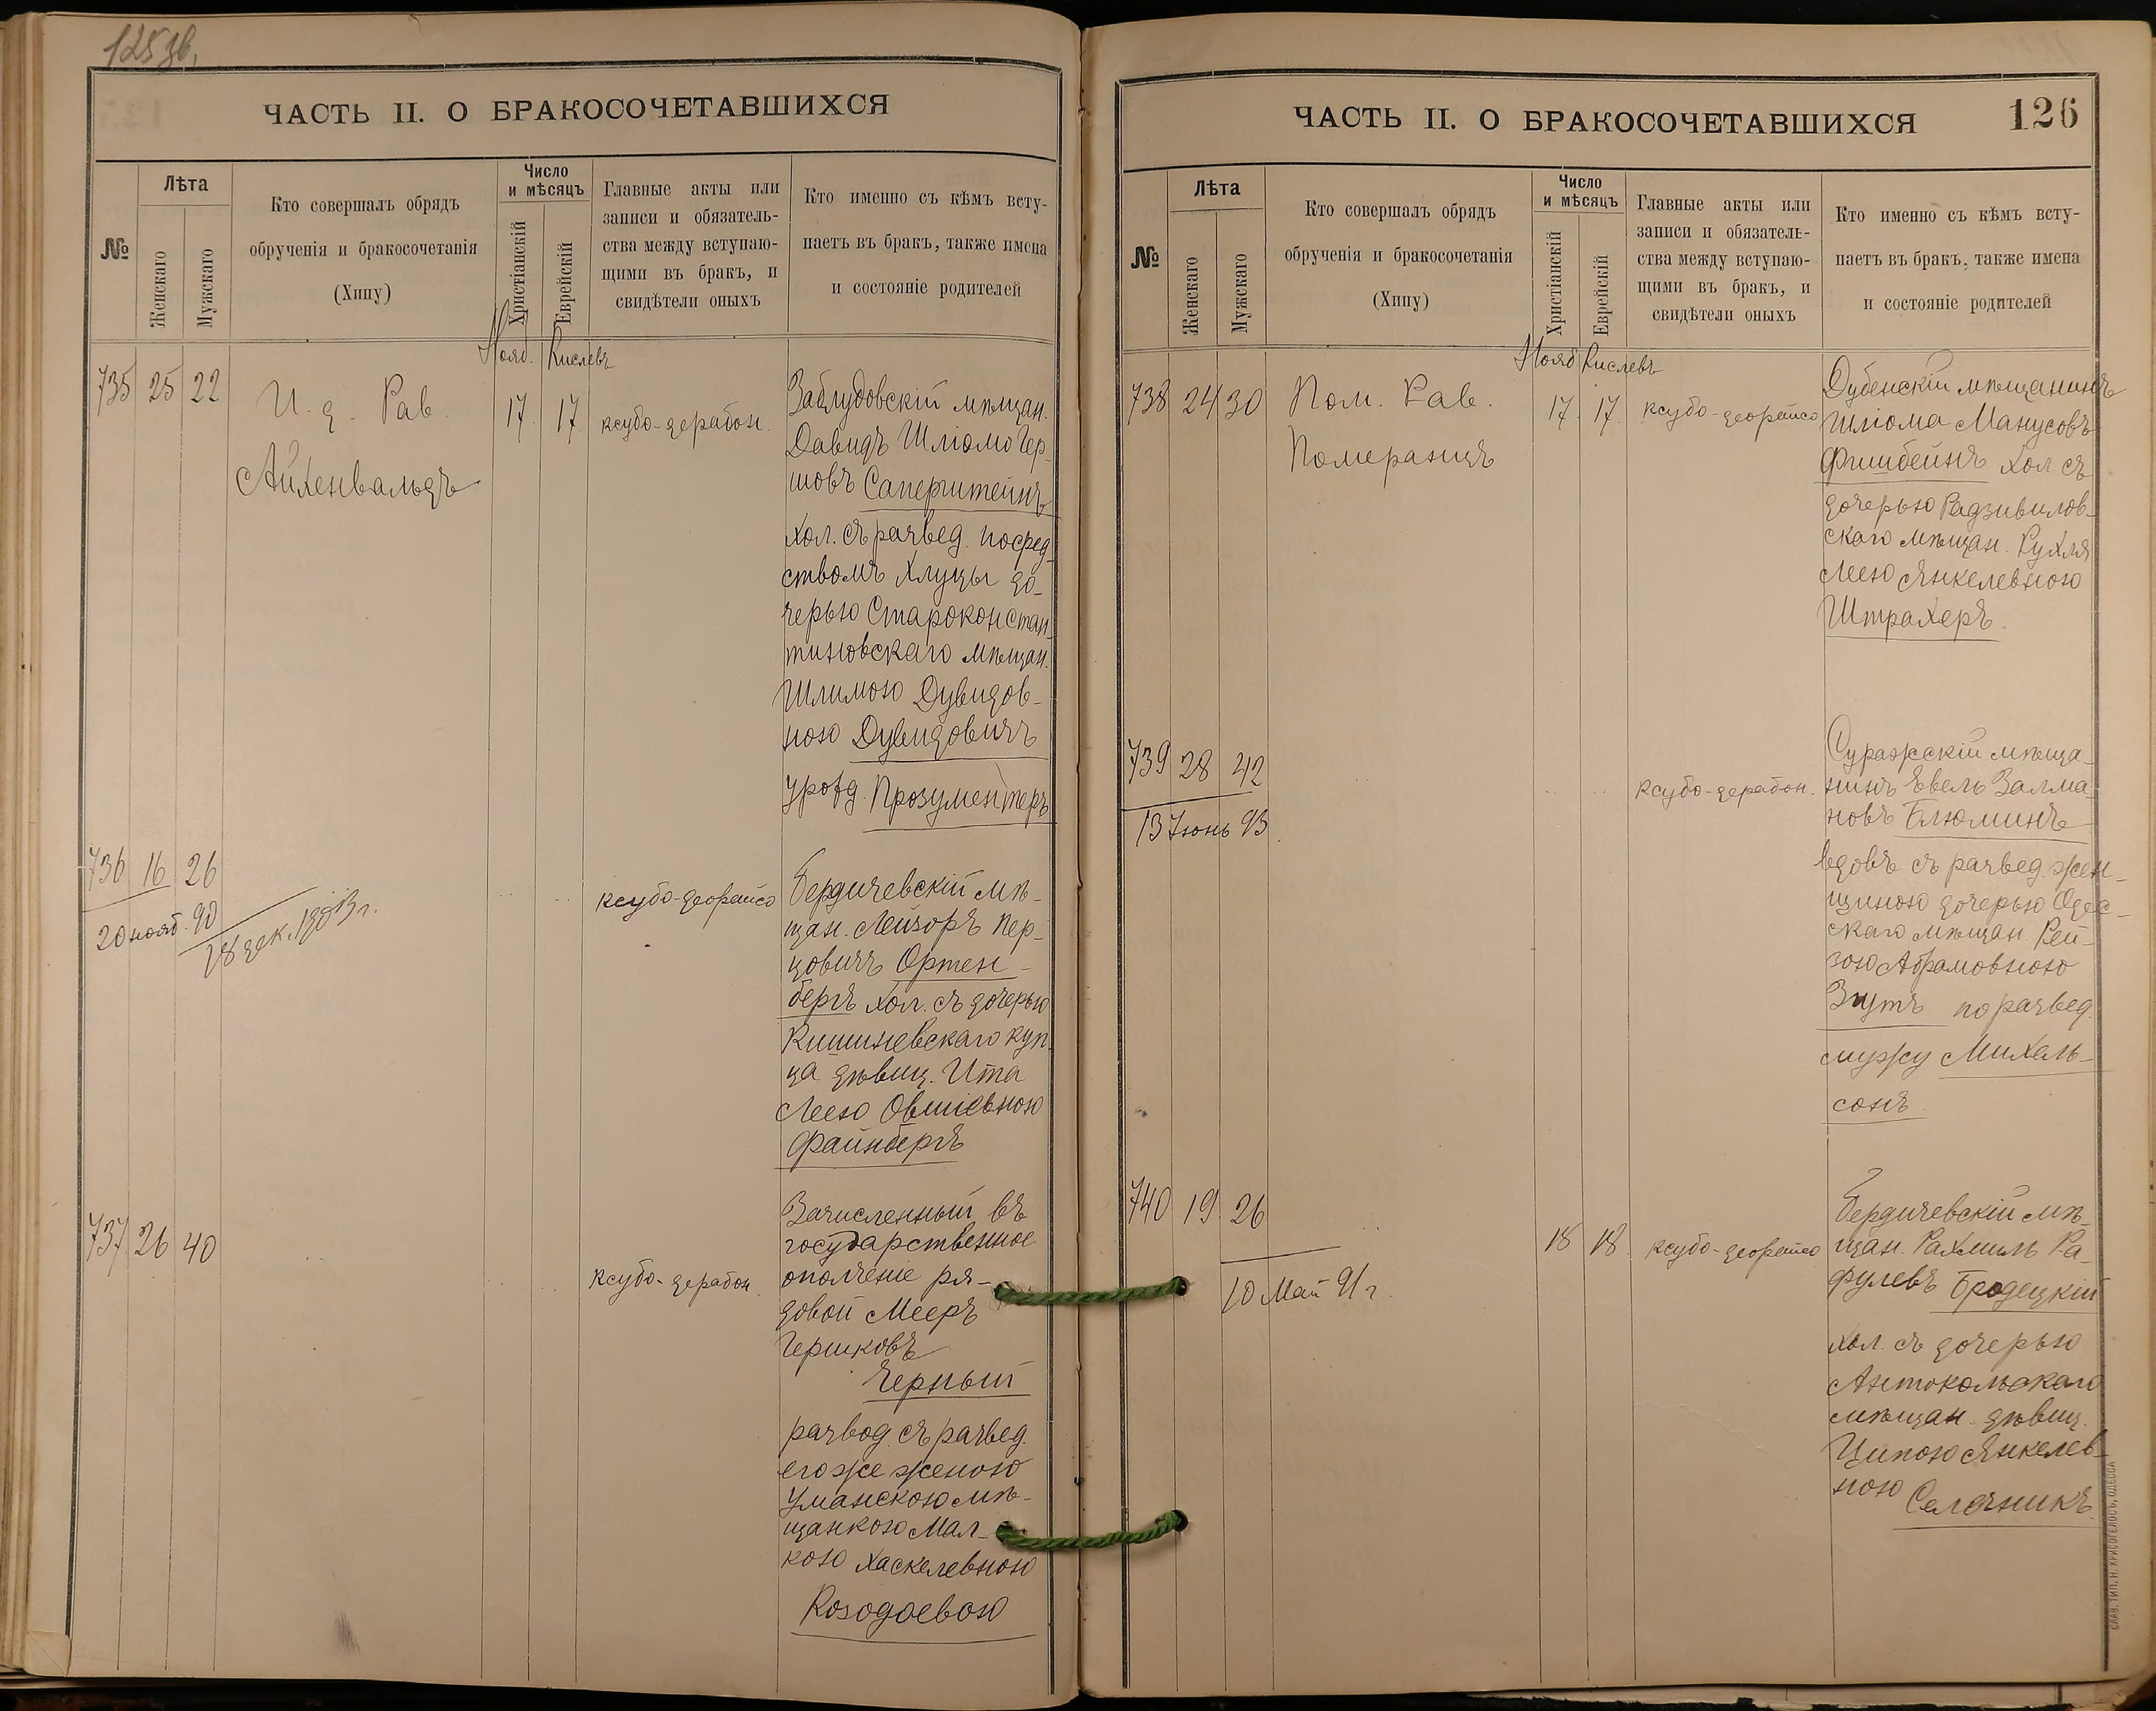 125 зв.
ЧАСТЬ II. О БРАКОСОЧЕТАВШИХСЯ
№
Лѣта
Женскаго
Мужскаго
Кто совершалъ обрядъ
обрученія и бракосочетанія
(Хипу)
Число
и мѣсяцъ
Христіанскій
Еврейскій
Главные акты или
записи и обязатель-
ства между вступаю-
щими въ бракъ, и
свидѣтели оныхъ
Кто именно съ кѣмъ всту-
паетъ въ бракъ, также имена
и состояніе родителей
Нояб. Кислевъ
735 25 22
И. д. Рав
Айхенвальдъ
17 17
ксубо-дерабон
Заблудовскій мѣщан.
Давидъ Шліомо Гер-
шовъ Саперштейнъ
хол. съ развед. посред-
ствомъ Хлуцы до-
черью Староконстан-
тиновскаго мѣщан.
Шлимою Дувидов-
ною Дувидовичъ
урожд. Прозументеръ
736 16 26
20 нояб. 90
28 дек. 1903 г.
ксубо-деорайсо
Бердичевскій мѣ-
щан. Лейзоръ Пер-
цовичъ Ортен-
бергъ хол. съ дочерью
Кишиневскаго куп-
ца дѣвиц. Ита
Леею Овшіевною
Файнбергъ
737 26 40
ксубо-дерабон.
Зачисленный въ
государственное
ополченіе ря-
довой Мееръ
Гершковъ
Черный
развод. съ развед.
его же женою
Уманскою мѣ-
щанкою Мал-
кою Хаскелевною
Козодоевою
ЧАСТЬ II. О БРАКОСОЧЕТАВШИХСЯ
126
№
Лѣта
Женскаго
Мужскаго
Кто совершалъ обрядъ
обрученія и бракосочетанія
(Хипу)
Число
и мѣсяцъ
Христіанскій
Еврейскій
Главные акты или
записи и обязатель-
ства между вступаю-
щими въ бракъ, и
свидѣтели оныхъ
Кто именно съ кѣмъ всту-
паетъ въ бракъ, также имена
и состояніе родителей
Нояб. Кислевъ
738 24 30
Пом. Рав.
Померанцъ
17 17
ксубо-деорайсо
Дубенскій мѣщанинъ
Шліома Манусовъ
Фишбейнъ хол съ
дочерью Радзивилов-
скаго мѣщан. Рухля
Леею Янкелевною
Штрахеръ.
739 28 42
13 Іюнь 93
ксубо-дерабон.
Суражскій мѣща-
нинъ Евель Залма-
новъ Блюминъ
вдовъ съ развед. жен-
щиною дочерью Одес-
скаго мѣщан Рей-
зою Абрамовною
Зутъ по развед.
мужу Михель-
сонъ
740 19 26
10 Май 91 г.
18 18
ксубо-деорайсо
Бердичевскій мѣ-
щан. Рахмиль Ра-
фулевъ Бродецкій
хол. съ дочерью
Антокольскаго
мѣщан. дѣвиц.
Ципою Янкелев-
ною Селечникъ
СЛАВ. ТИП. Н. ХРИСОГЕЛОСЪ, ОДЕССА